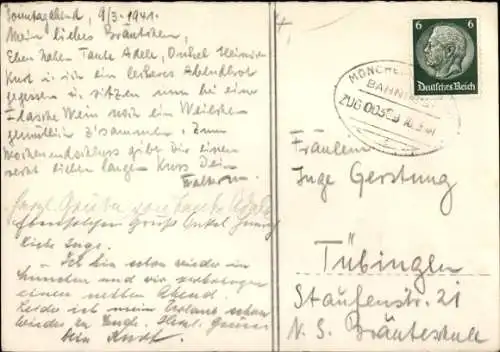 Sonntagabend, 9/3. 1941.
Mein liebes Bräutchen,
Eben haben Tante Adele, Onkel Heinrich
Kurt u. ich ein leckeres Abendbrot
gegessen u. sitzen nun bei einer
Flasche Wein noch ein Weilchen
gemütlich zusammen. Zum
Wochenendschluss gibt Dir einen
recht lieben langen Kuss Dein
Herzl. Grüße von Tante Adele
Ebenfalls Gruß Onkel
Liebe Inge.
Ich bin schon wieder in
München und wir verbringen
einen netten Abend.
Leider ist mein Urlaub schon
wieder zu Ende. Herzl. Grüsse
Dein Kurt.
6 6
Deutsches Reich
MÜNCHEN
BAHNPOST
ZUG
Fräulein
Inge Gerstung
Tübingen
Staufenstr. 21
N. S. Bräuteschule